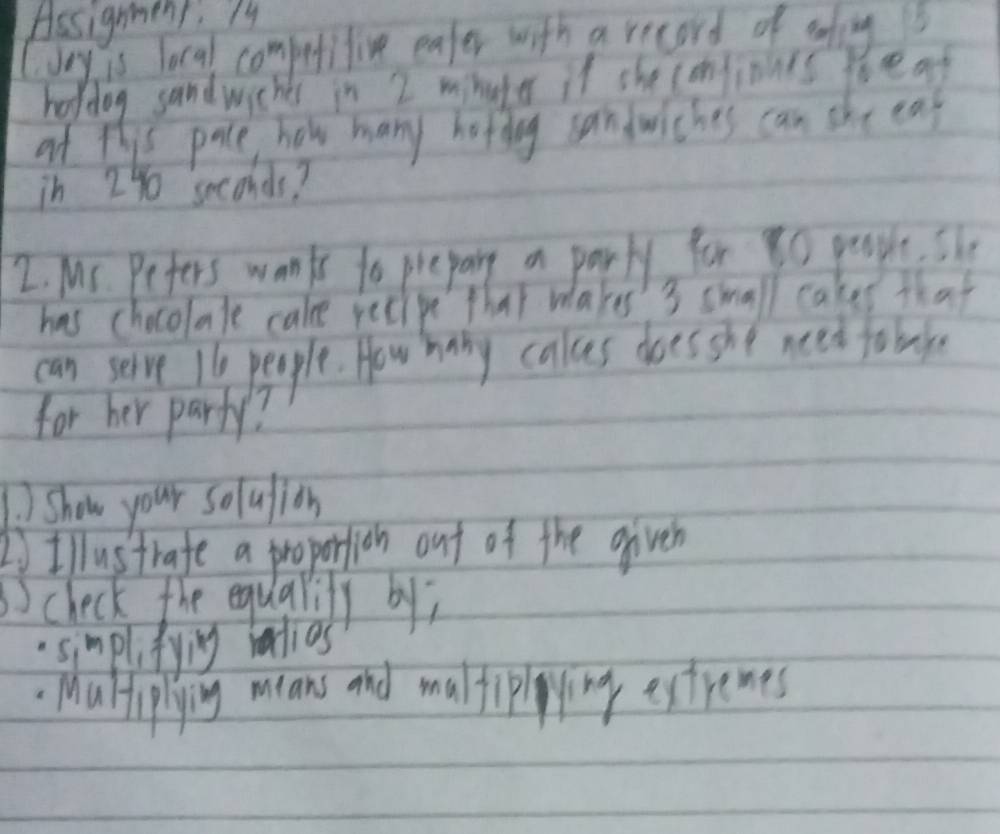 Assignment: 14
1. Joy is local competitive eater with a record of eating 15
hotdog sandwiches in 2 minutes if she continues to eat
at this pace, how many hotdog sandwiches can she eat
in 240 seconds?
2. Ms. Peters wants to prepare a party for 80 people. She
has chocolate cake recipe that makes 3 small cakes that
can serve 16 people. How many cakes does she need to bake
for her party?
1.) Show your solution
2.) Illustrate a proportion out of the given
3.) check the equality by;
• simplifying ratios
• Multiplying means and multiplying extremes